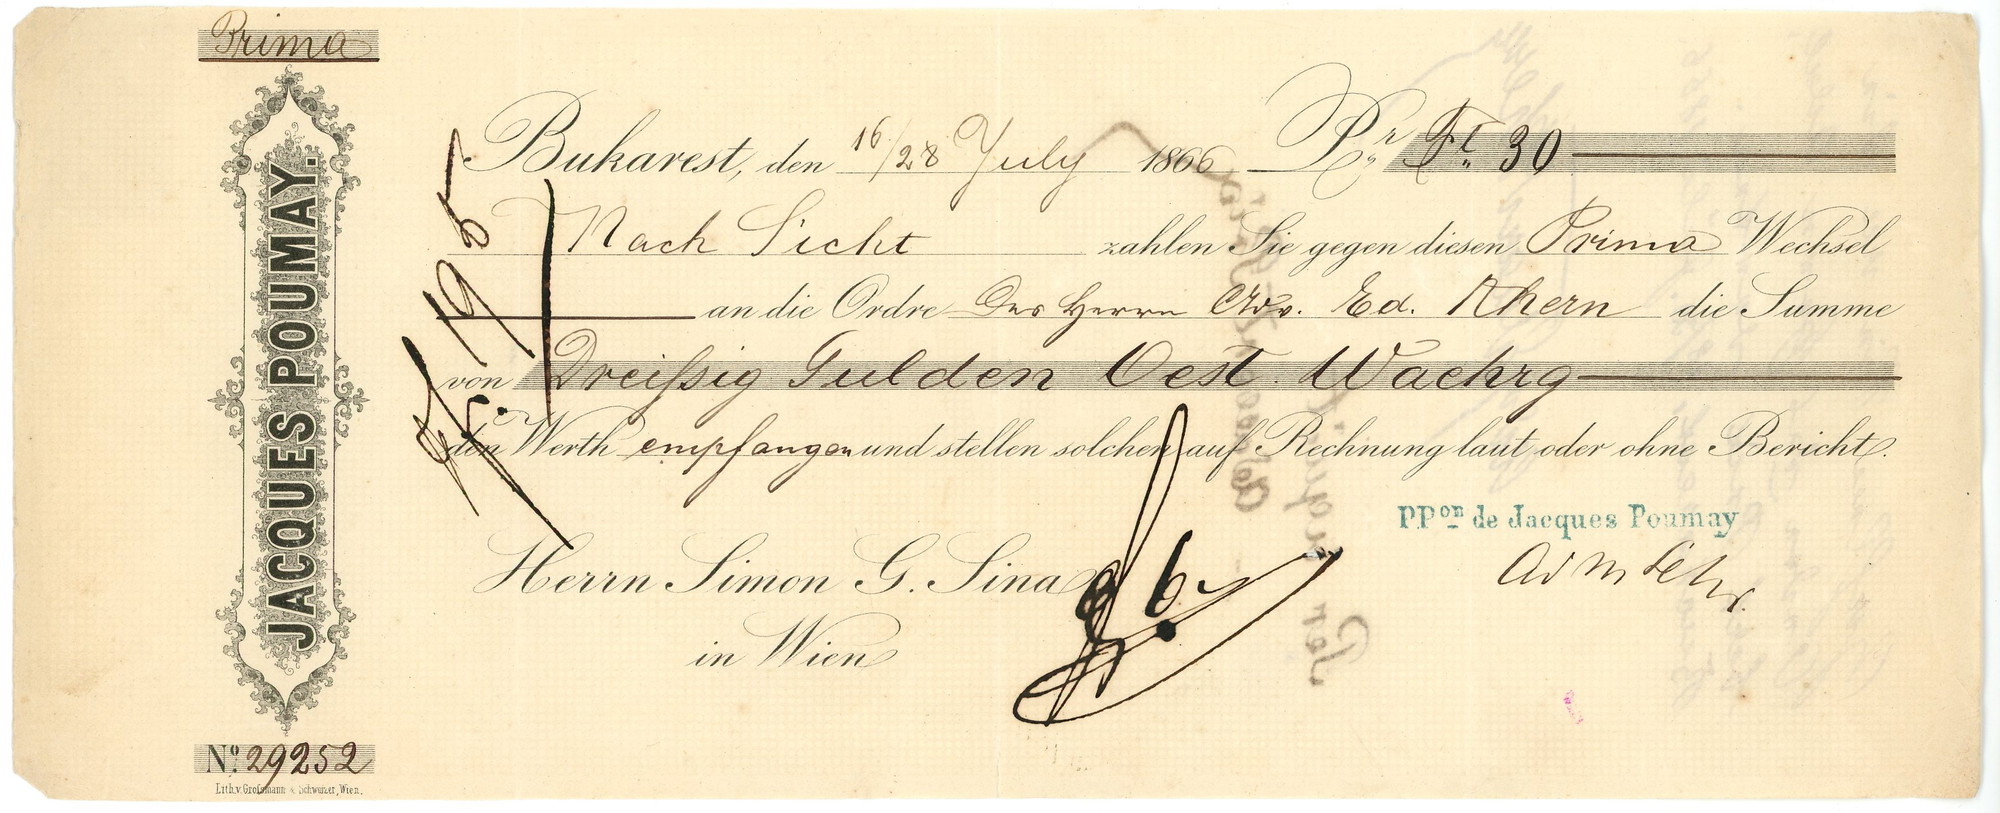 Prima
JACQUES POUMAY.
Nº 29252
Lith. v. Großmann & Schweizer, Wien.
Bukarest, den 16/28 July 1866 Pr Fl 30
Nach Sicht zahlen Sie gegen diesen Prima Wechsel
an die Ordre Des Herrn Adv. Ed. Khern die Summe
von Dreißig Gulden Oest. Waehrg
den Werth empfangen und stellen solchen auf Rechnung laut oder ohne Bericht.
Herrn Simon G. Sina
in Wien
P.Pon de Jacques Poumay